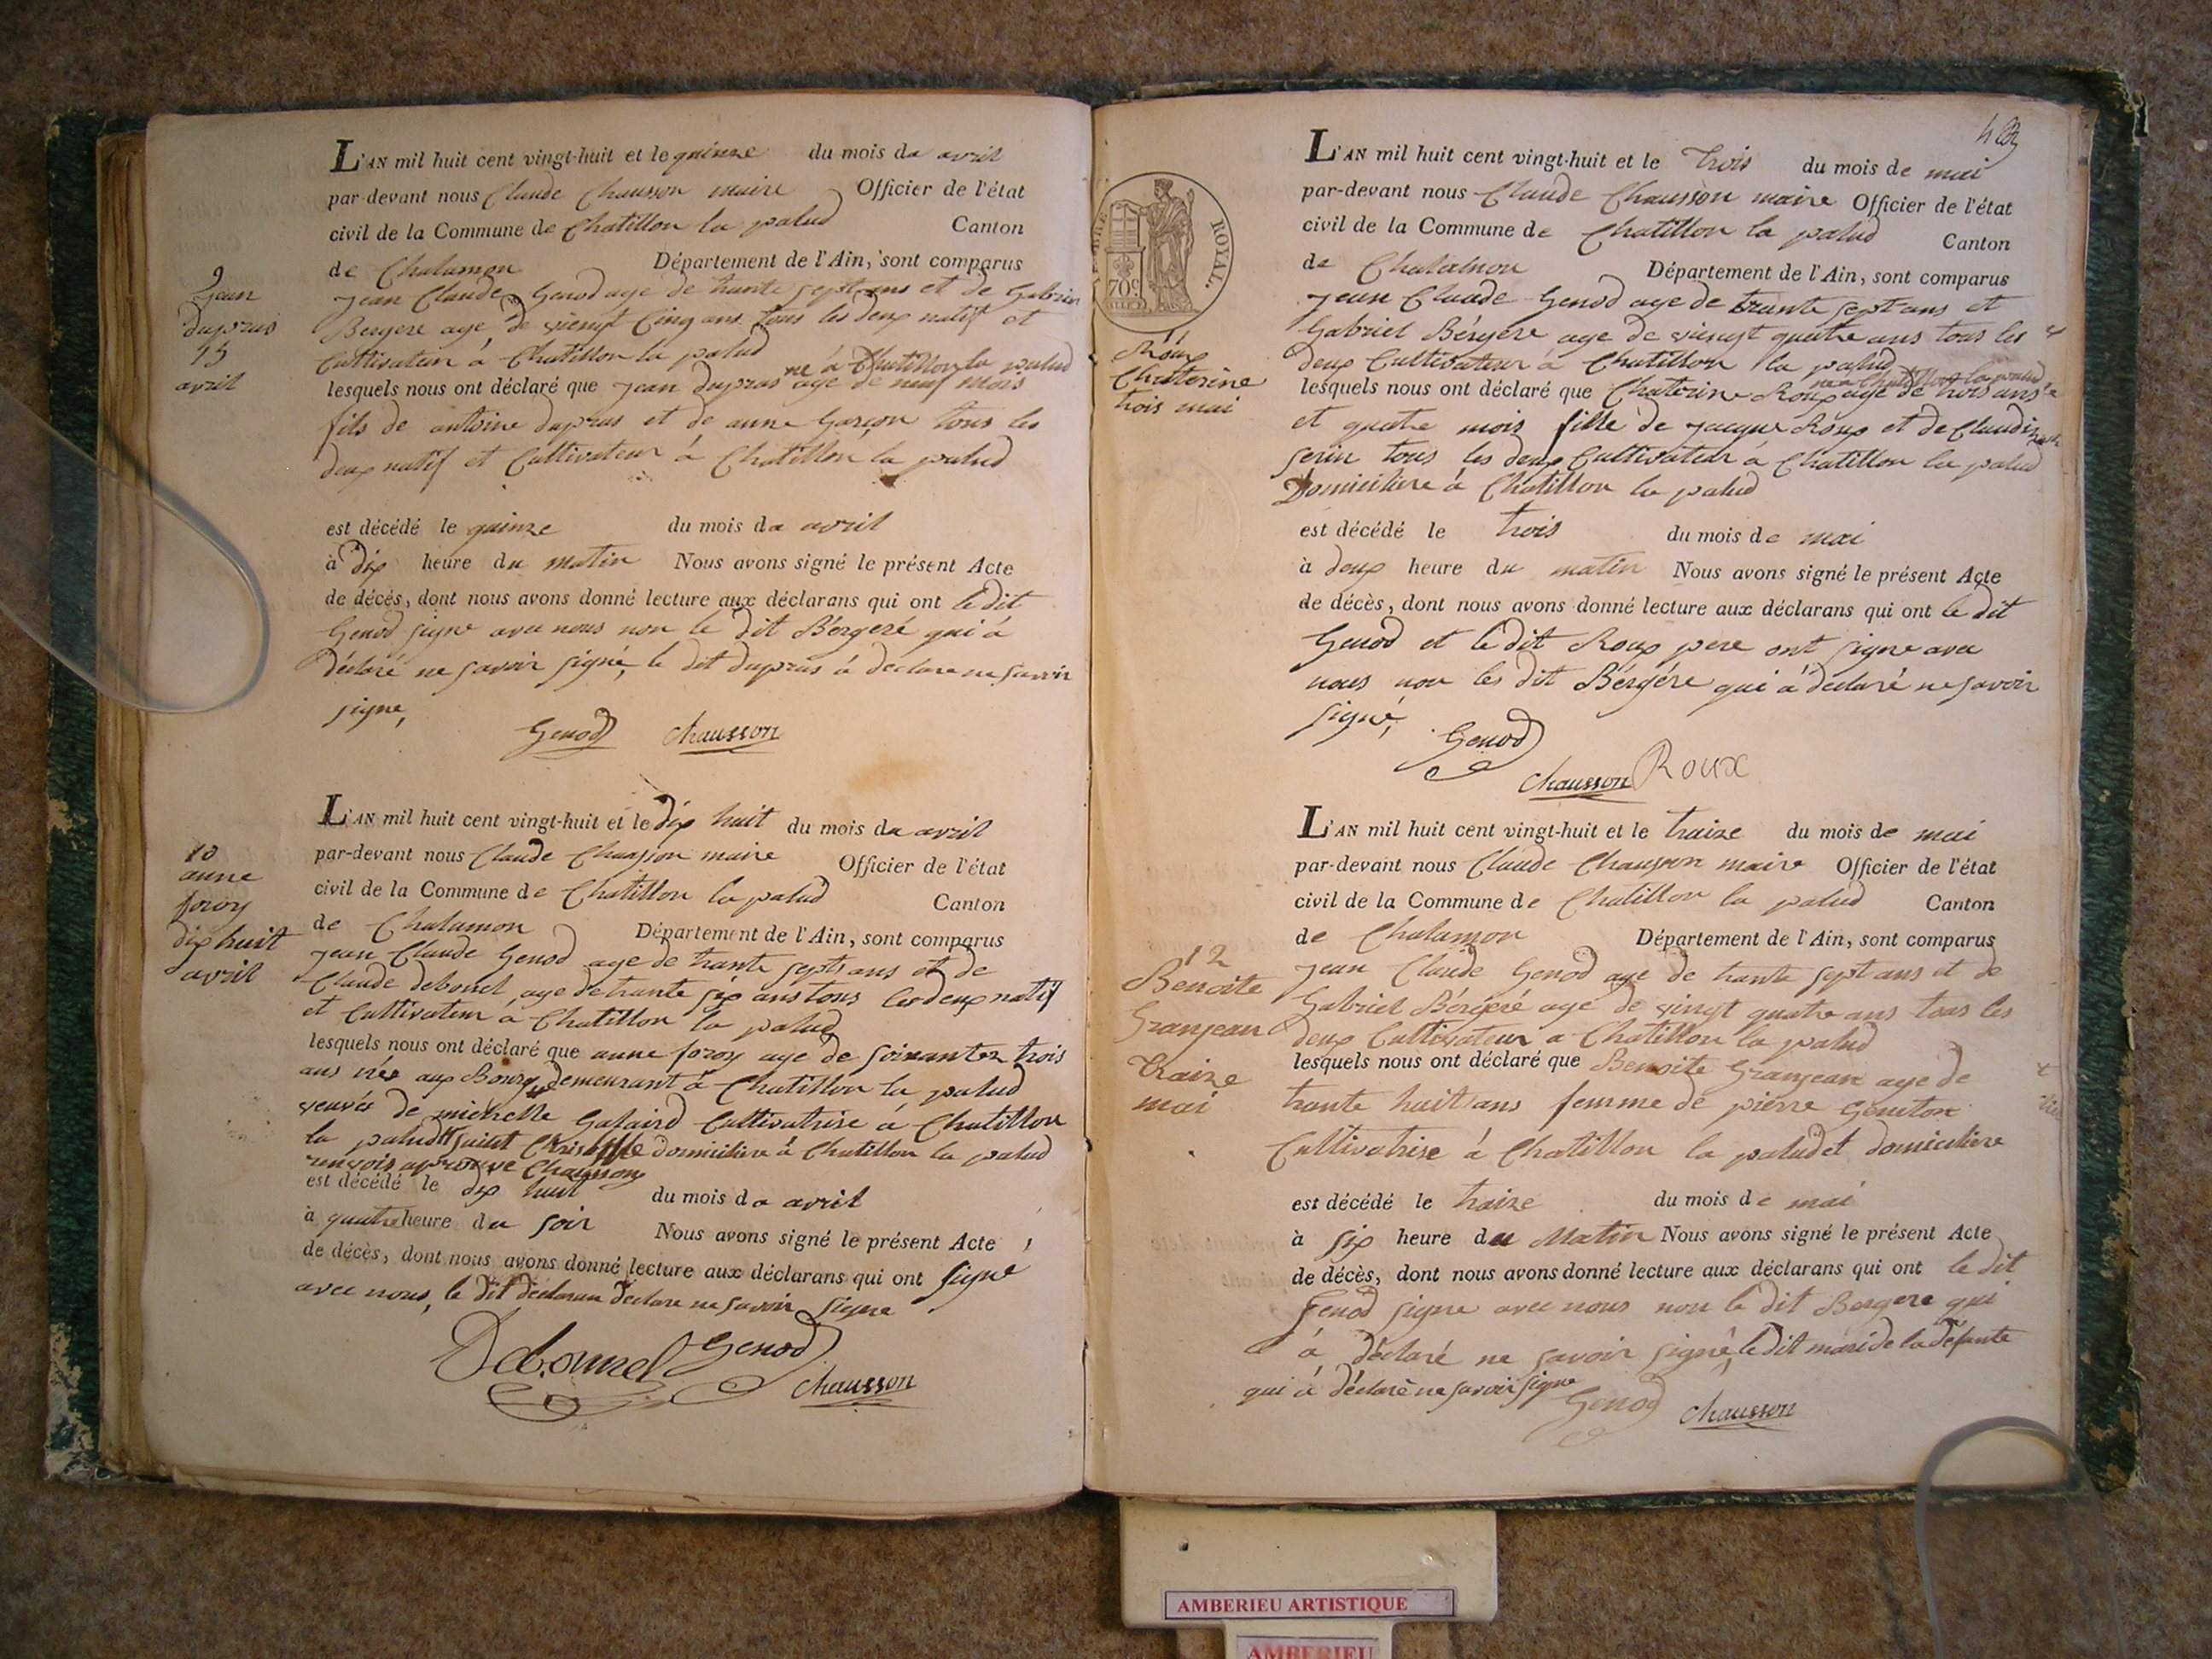 L'AN mil huit cent vingt-huit et le quinze du mois da avril
par devant nous Claude Chausson maire Officier de l'état
civil de la Commune de Chatillon la palud Canton
de Chalamon Département de l'Ain, sont comparus
9
Jean
dupras
15
avril
jean Claude Genod age de trante sept ans et de Gabriel
Bergere age de vieingt Cinq ans tous les deux natif et
Cultivateur à Chatillon la palud
né à Chatillon la palud
lesquels nous ont déclaré que jean dupras age de neuf mois
fils de antoine dupras et de anne Garçon tous les
deux natif et Cultivateur à Chatillon la palud
est décédé le quinze du mois da avril
à dix heure du matin Nous avons signé le présent Acte
de décés, dont nous avons donné lecture aux déclarans qui ont le dit
Genod signe avec nous non le dit Bergeré qui à
déclaré ne savoir signé, le dit dupras à declare ne savoir
signe,
Genod Chausson
L'AN mil huit cent vingt-huit et le dix huit du mois da avril
par-devant nous Claude Chausson maire Officier de l'état
civil de la Commune de Chatillon la palud Canton
de Chalamon Département de l'Ain, sont comparus
10
anne
foroy
dix huit
avril
jean Claude Genod age de trante septs ans et de
Claude debonel age de trante six ans tous les deux natif
et Cultivateur à Chatillon la palud
lesquels nous ont déclaré que anne foroy age de soixantes trois
ans née aux Bourg demeurant à Chatillon la palud
veuvée de michelle Galaird Cultivatrise à Chatillon
la palud saint Christoffle domiciliere à Chatillon la palud
renvois aprouve Chausson
est décédé le dix huit du mois da avril
à quatre heure du soir Nous avons signé le présent Acte
de décès, dont nous avons donné lecture aux déclarans qui ont signe
avec nous, le dit declaran declare ne savoir signe
Debonnel Genod
Chausson
L'AN mil huit cent vingt-huit et le trois du mois de mai
par-devant nous Claude Chausson maire Officier de l'état
civil de la Commune de Chatillon la palud Canton
de Chalamon Département de l'Ain, sont comparus
ROYAL
70c
11
Roux
Chaterine
trois mai
jean Claude Genod age de trante sept ans et
Gabriel Bérgére age de vieingt quatre ans tous les
deux Cultivateur à Chatillon la palud
né a Chatillon la palud
lesquels nous ont déclaré que Chaterine Roux age de trois ans
et quatre mois fille de jacque Roux et de Claudine
serin tous les deux Cultivateur à Chatillon la palud
Domiciliere à Chatillon la palud
est décédé le trois du mois de mai
à deux heure du matin Nous avons signé le présent Acte
de décès, dont nous avons donné lecture aux déclarans qui ont le dit
Genod et le dit Roux pere ont signe avec
nous non les dit Bérgére qui à déclaré ne savoir
signé,
Genod
Chausson Roux
L'AN mil huit cent vingt-huit et le traize du mois de mai
par-devant nous Claude Chausson maire Officier de l'état
civil de la Commune de Chatillon la palud Canton
de Chalamon Département de l'Ain, sont comparus
12
Benoite
Granjean
Traize
mai
jean Claude Genod age de trante sept ans et de
Gabriel Bérgeré age de vingt quatre ans tous les
deux Cultivateur a Chatillon la palud
lesquels nous ont déclaré que Benoite Granjean age de
trante huit ans femme de pierre Geneton
Cultivatrise à Chatillon la palud et domiciliere
est décédé le traize du mois de mai
à six heure du Matin Nous avons signé le présent Acte
de décès, dont nous avons donné lecture aux déclarans qui ont le dit
Genod signe avec nous non le dit Bergere qui
à déclaré ne savoir signé, le dit mari de la défunte
qui à déclaré ne savoir signe
Genod Chausson
AMBERIEU ARTISTIQUE
AMBERIEU